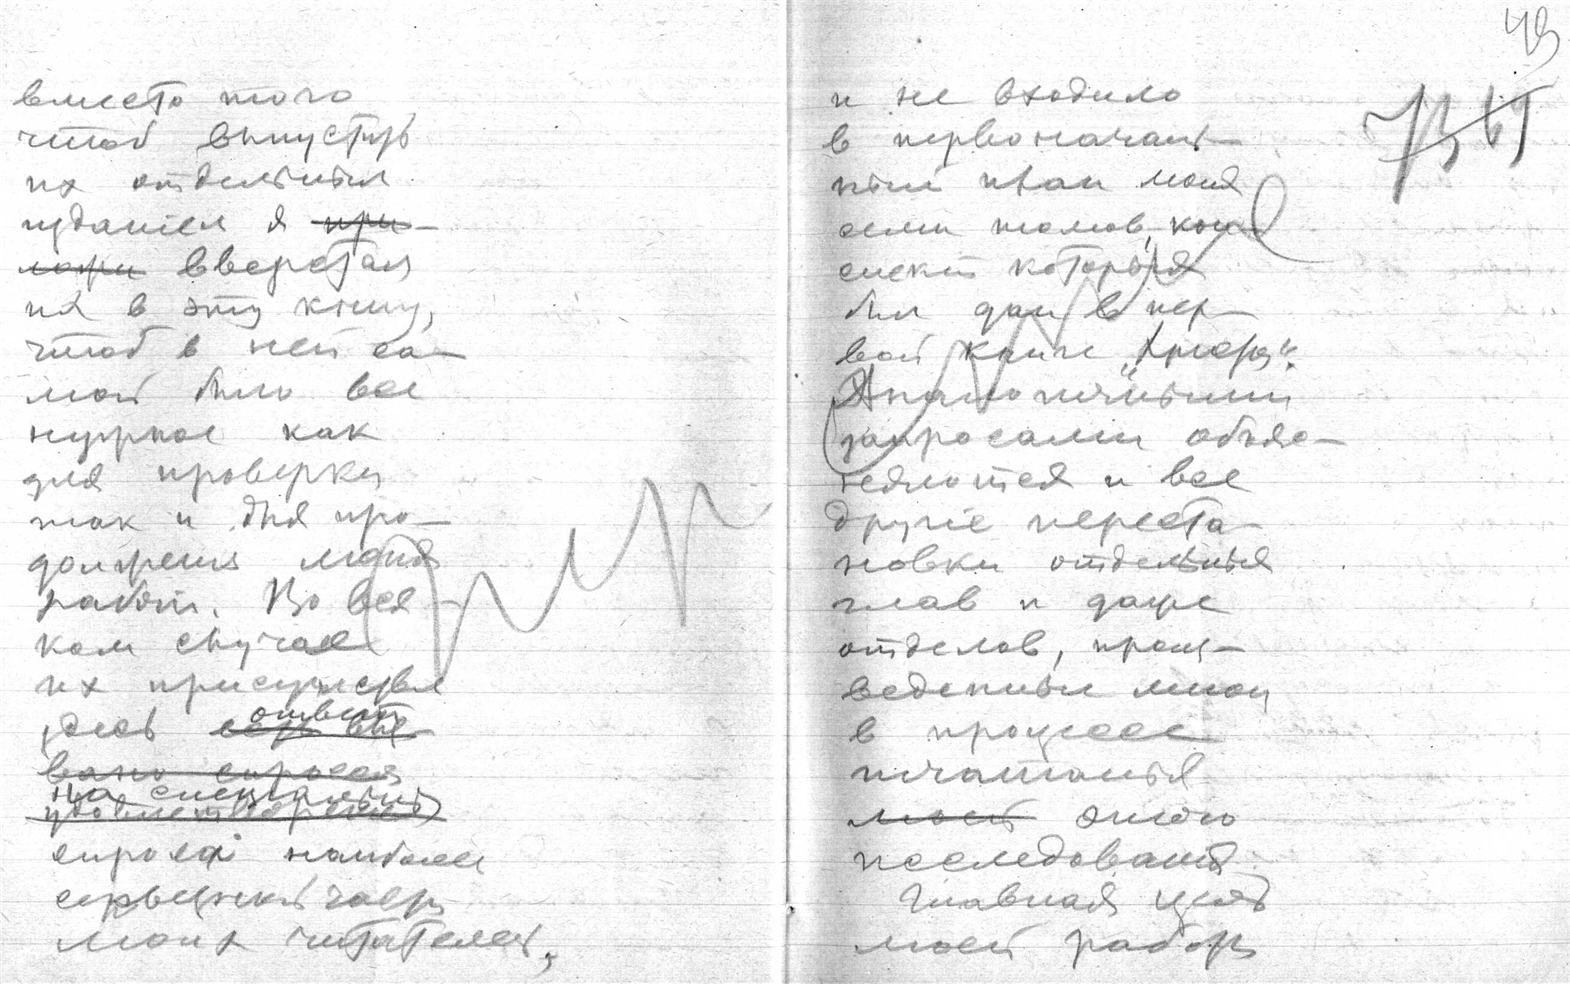 вместо того
чтоб выпустить
их отдельным
изданіем я при-
ложи вверстал
их в эту книгу,
чтоб в ней са-
мой было все
нужное как
для проверки
так и для про-
должения моих
работ. Во вся-
ком случае
их присутствие
здесь отвеча
на специальный
спрос наиболее
серьезной части
моих читателей,
43
и не входило
в первоначаль-
ный план моих
семи томов, кон-
спект которых
был дан в пер-
вой книге „Христа“.
Аналогичными
запросами объяс-
няются и все
другіе переста-
новки отдельных
глав и даже
отделов, произ-
веденныя мною
в процессе
печатанья
моей этого
исследования.
Главная цель
моей работы